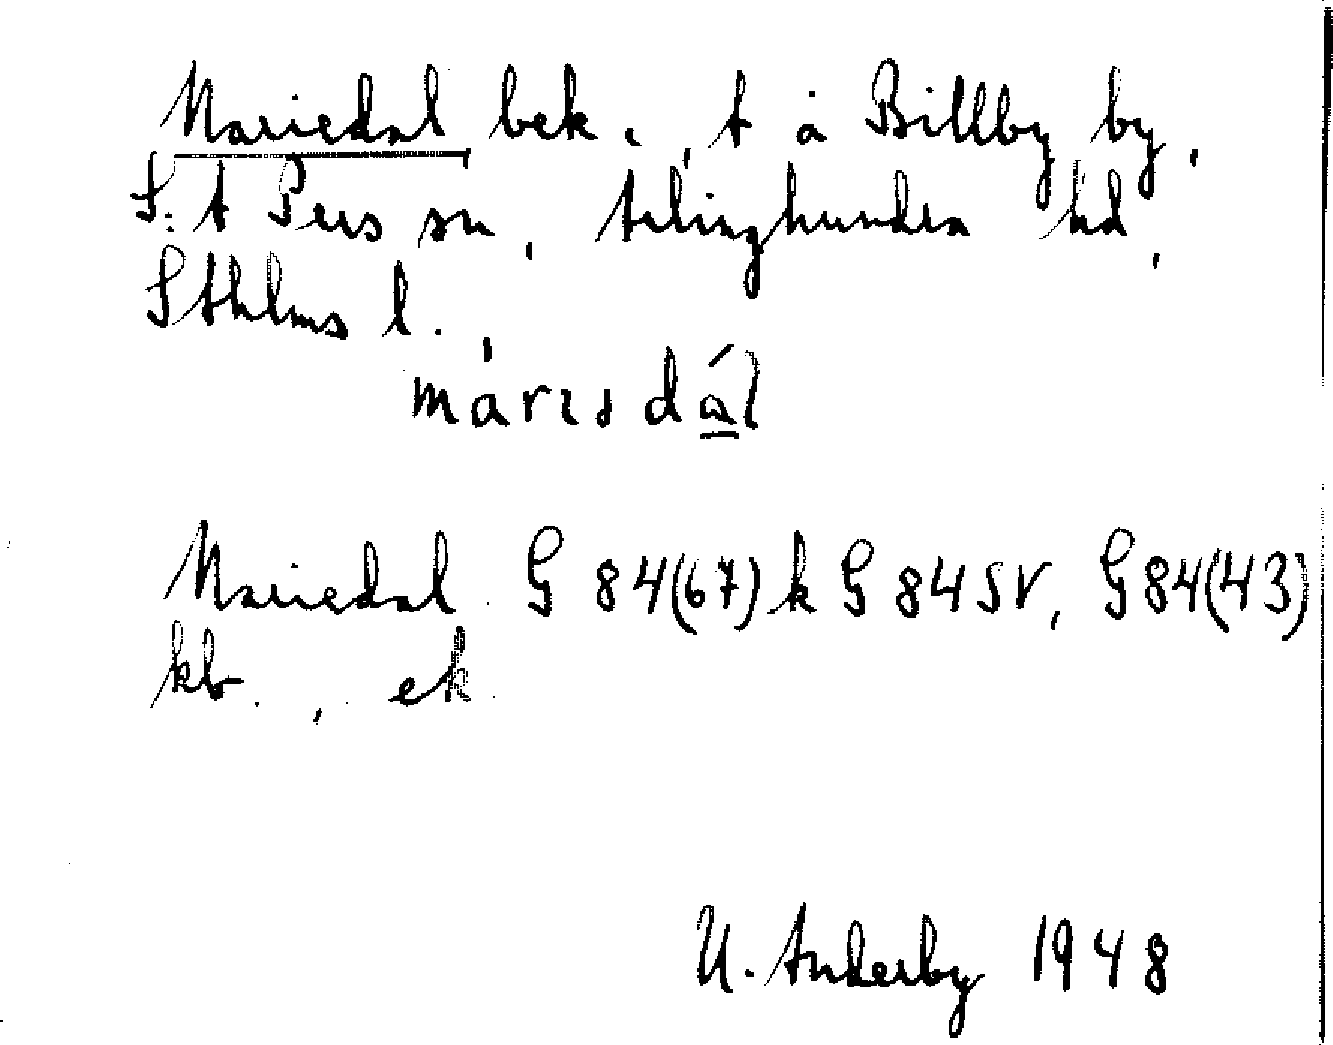 Mariedal bek., t å Billby by,
S:t Pers sn, Ärlinghundra hd,
Sthlms l.
márɩsdál
Mariedal G 84(67) k G 84 SV, G 84(43)
kb., ek
U. Anderby 1948